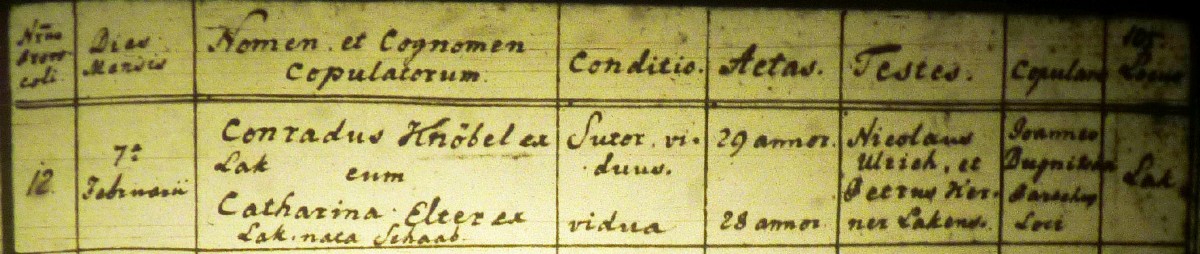 Nrus
Proto
coli.
Dies
Mensis
Nomen et Cognomen
Copulatorum.
Conditio.
Aetas.
Testes.
Copulans
105.
Locus
12.
7ª
Februarii
Conradus Knöbel ex
Lak cum
Catharina Elter ex
Lak nata Schaab.
Sutor. vi-
duus.
vidua
29 annor.
28 annor
Nicolaus
Ulrich, et
Petrus Her-
ner Lakens.
Joannes
Parochus
Loci
Lak